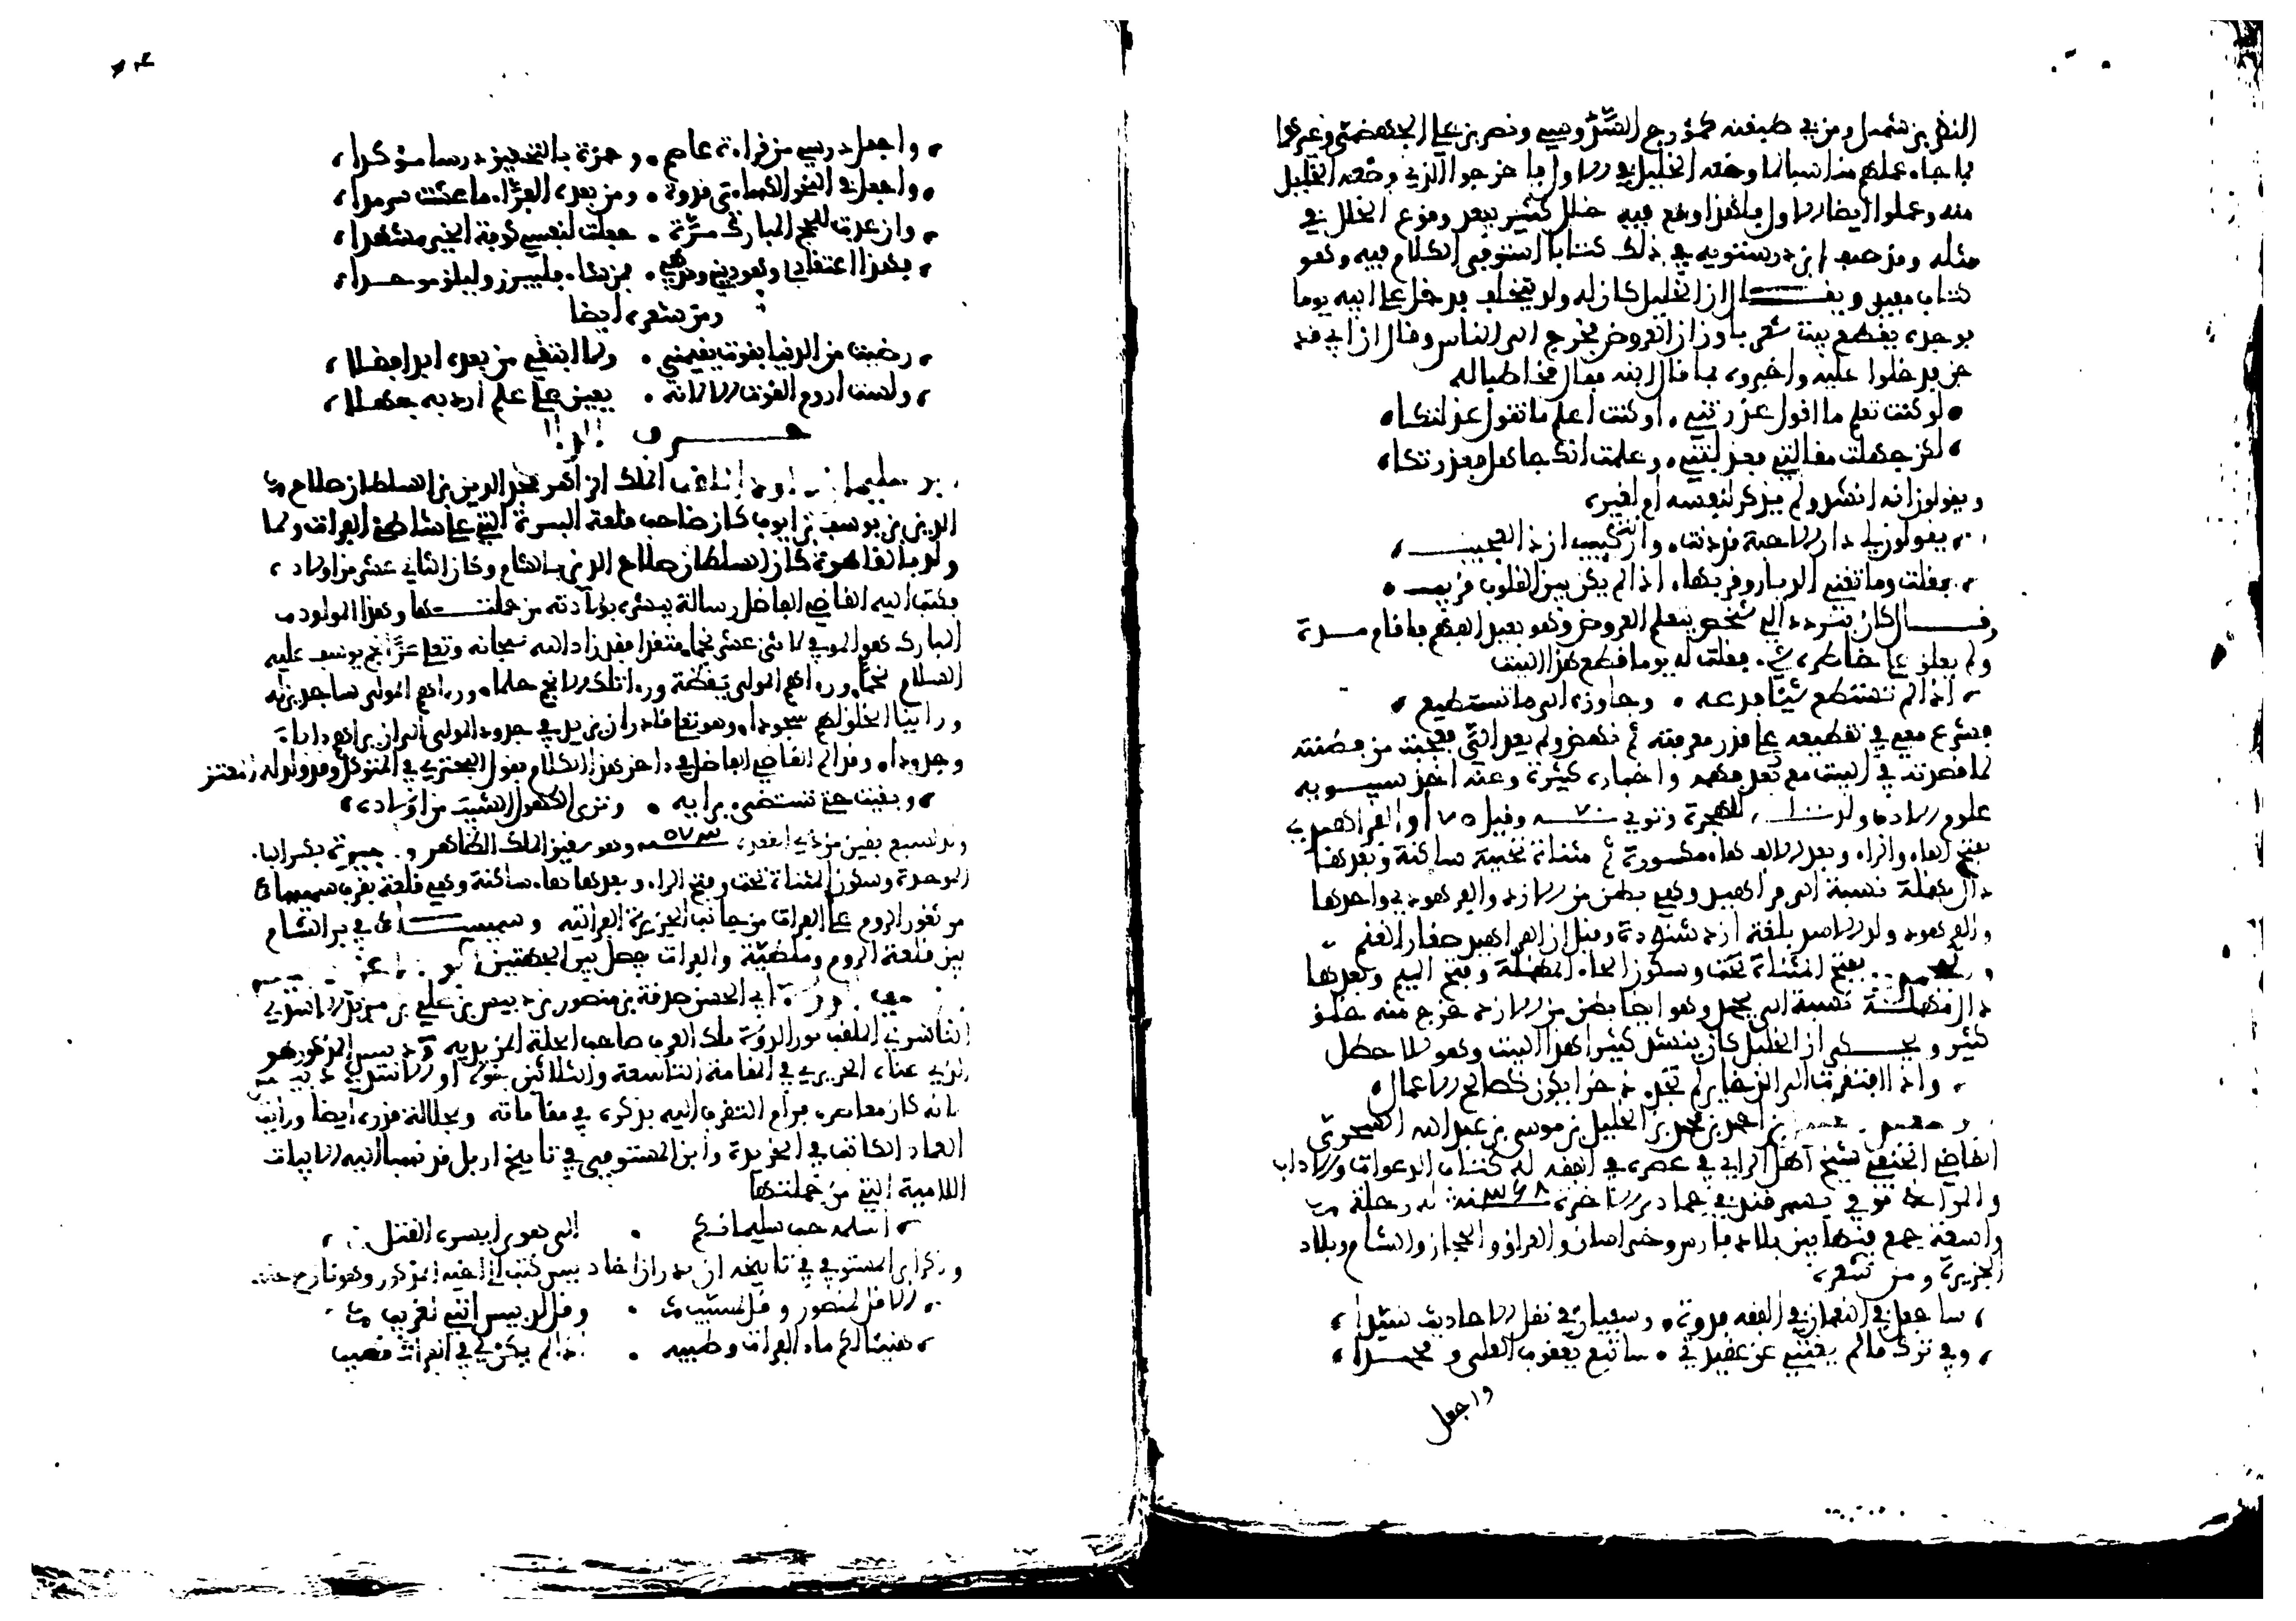 النضر بن شميل ومن في طبقته كمؤرج السدوسي ونصر بن علي الجهضمي وغيرهما
منه وعملوا ايضا الاول فلهذا وقع فيه خلل كثير يبعد وقوع الخلل في
مثله وقد صنف ابن درستويه في ذلك كتابا استوفى الكلام فيه وهو
كتاب مفيد ويقال ان الخليل كان له ولد متخلف فدخل على ابيه يوما
فوجده يقطع بيت شعر باوزان العروض فخرج الى الناس وقال ان ابي قد
جن فدخلوا عليه واخبروه بما قال ابنه فقال مخاطبا له
لو كنت تعلم ما اقول عذرتني . او كنت اعلم ما تقول عذلتكا
لكن جهلت مقالتي فعذلتني . وعلمت انك جاهل فعذرتكا
ويقولون انه انشد ولم يذكر لنفسه او لغيره
يقولون لي دار الاحبة قد دنت . وانت كئيب ان ذا لعجيب
فقلت وما تغني الديار وقربها . اذا لم يكن بين القلوب قريب
وقال كان يتردد الي شخص يتعلم العروض وهو بعيد الفهم فاقام مدة
ولم يعلق على خاطره شيء . فقلت له يوما قطع هذا البيت
اذا لم تستطع شيئا فدعه . وجاوزه الى ما تستطيع
فشرع معي في تقطيعه على قدر معرفته ثم نهض ولم يعد الي فعجبت من فطنته
لما قصدته في البيت مع بعد فهمه واخباره كثيرة وعنه اخذ سيبويه
علوم الادب ولد سنة ١٠٠ للهجرة وتوفي سنة ٧٠ وقيل ٧٥ او الفراهيدي
بفتح الفاء والراء وبعد الالف هاء مكسورة ثم مثناة تحتية ساكنة وبعدها
دال مهملة نسبة الى فراهيد وهي بطن من الازد والفرهودي واحدها
والفرهود ولد الاسد بلغة ازد شنوءة وقيل ان الفراهيد صغار الغنم
بفتح المثناة تحت وسكون الحاء المهملة وفتح الميم وبعدها
دال مهملة نسبة الى يحمد وهو ايضا بطن من الازد خرج منه خلق
كثير ويحكى ان الخليل كان ينشد كثيرا هذا البيت وهو للاخطل
واذا افتقرت الى الذخاير لم تجد . ذخرا يكون كصالح الاعمال
بن احمد بن محمد بن الخليل بن موسى بن عبد الله السجزي
القاضي الحنفي شيخ اهل الراي في عصره في الفقه له كتاب الدعوات والاداب
والمواعظ توفي بسمرقند في جمادى الاخرة سنة ٣٦٨ له رحلة
واسعة جمع فيها بين بلاد فارس وخراسان والعراق والحجاز والشام وبلاد
الجزيرة ومن شعره
ساجعل لي النعمان في الفقه قدوة . وسفيان في نقل الاحاديث سيدا
وفي ترك ما لم يعنني عن عقيدتي . ساتبع يعقوب العلى ومحمدا
واجعل
واجعل درسي من قراءة عاصم . وحمزة بالتحقيق درسا مؤكدا
واجعل في النحو الكسائي قدوة . ومن بعده الفراء ما عشت سرمدا
وان عدت للحج المبارك مرة . جعلت لنفسي كوفة الخير مشهدا
فهذا اعتقادي وهو ديني ومذهبي . فمن شاء فليبرز وليلق موحدا
ومن شعره ايضا
رضيت من الدنيا بقوت يقيمني . ولا ابتغي من بعده ابدا فضلا
ولست اروم القوت الا لانه . يعين على علم ارد به جهلا
حرف الدال
الملك الزاهر مجير الدين بن السلطان صلاح
الدين بن يوسف بن ايوب كان صاحب قلعة البيرة التي على شاطئ الفرات ولما
ولد بالقاهرة كان السلطان صلاح الدين بالشام وكان الثاني عشر من اولاده
فكتب اليه القاضي الفاضل رسالة يبشره بولادته من جملتها وهذا المولود
المبارك هو الموفي لاثني عشر نجما متقدا فقد زاد الله سبحانه وتعلى عن انجم يوسف عليه
السلام نجما ورءاهم المولى يقظة ورءا تلك الانجم حلما ورءاهم المولى ساجدين له
وراينا الخلق لهم سجودا وهو تعلى قادر ان يزيد في جدود المولى الى ان يراهم ءاباء
وجدودا . وقد الم القاضي الفاضل في ءاخر هذا الكلام بقول البحتري في المتوكل وقد ولد له المعتز
وبقيت حتى تستضيء برايه . وترى الكهول الشيب من اولاده
ولد لسبع بقين من ذي القعدة سنة ٥٧٣ وهو شقيق الملك الظاهر و. بيرة بكسر الباء
الموحدة وسكون المثناة تحت وفتح الراء وبعدها هاء ساكنة وهي قلعة بقرب سميساط
من ثغور الروم على الفرات من جانب الجزيرة الفراتية وسميساط في بر الشام
بين قلعة الروم وملطية والفرات يفصل بين الجهتين
ابي الحسن صدقة بن منصور بن دبيس بن علي بن مزيد الاسدي
الناشري الملقب نور الدولة ملك العرب صاحب الحلة المزيدية ودبيس المذكور هو
الذي عناه الحريري في المقامة التاسعة والثلاثين بقوله او الاسدي دبيس
لانه كان معاصره فرام التقرب اليه بذكره في مقاماته ولجلالة قدره ايضا ورايت
العماد الكاتب في الخريدة وابن المستوفي في تاريخ اربل قد نسبا اليه الابيات
اللامية التي من جملتها
اسلمه حب سليمانكم . الى هوى ايسره القتل
وذكر ابن المستوفي في تاريخه ان بدران اخا دبيس كتب الى اخيه المذكور وهو نازح عنه
الا قل لمنصور وقل لمسيب . وقل لدبيس انني لغريب
هنيئا لكم ماء الفرات وطيبه . اذا لم يكن لي في الفرات نصيب